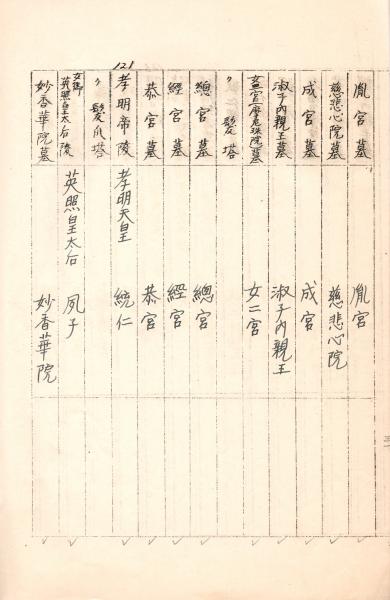 胤宮墓 胤宮
慈悲心院墓 慈悲心院
成宮墓 成宮
淑子内親王墓 淑子内親王
女二宮摩尼珠院墓 女二宮
〃 髪塔
總宮墓 總宮
經宮墓 經宮
恭宮墓 恭宮
121
孝明帝陵 孝明天皇 統仁
〃 髪爪塔
女御
英照皇太后陵 英照皇太后 夙子
妙香華院墓 妙香華院